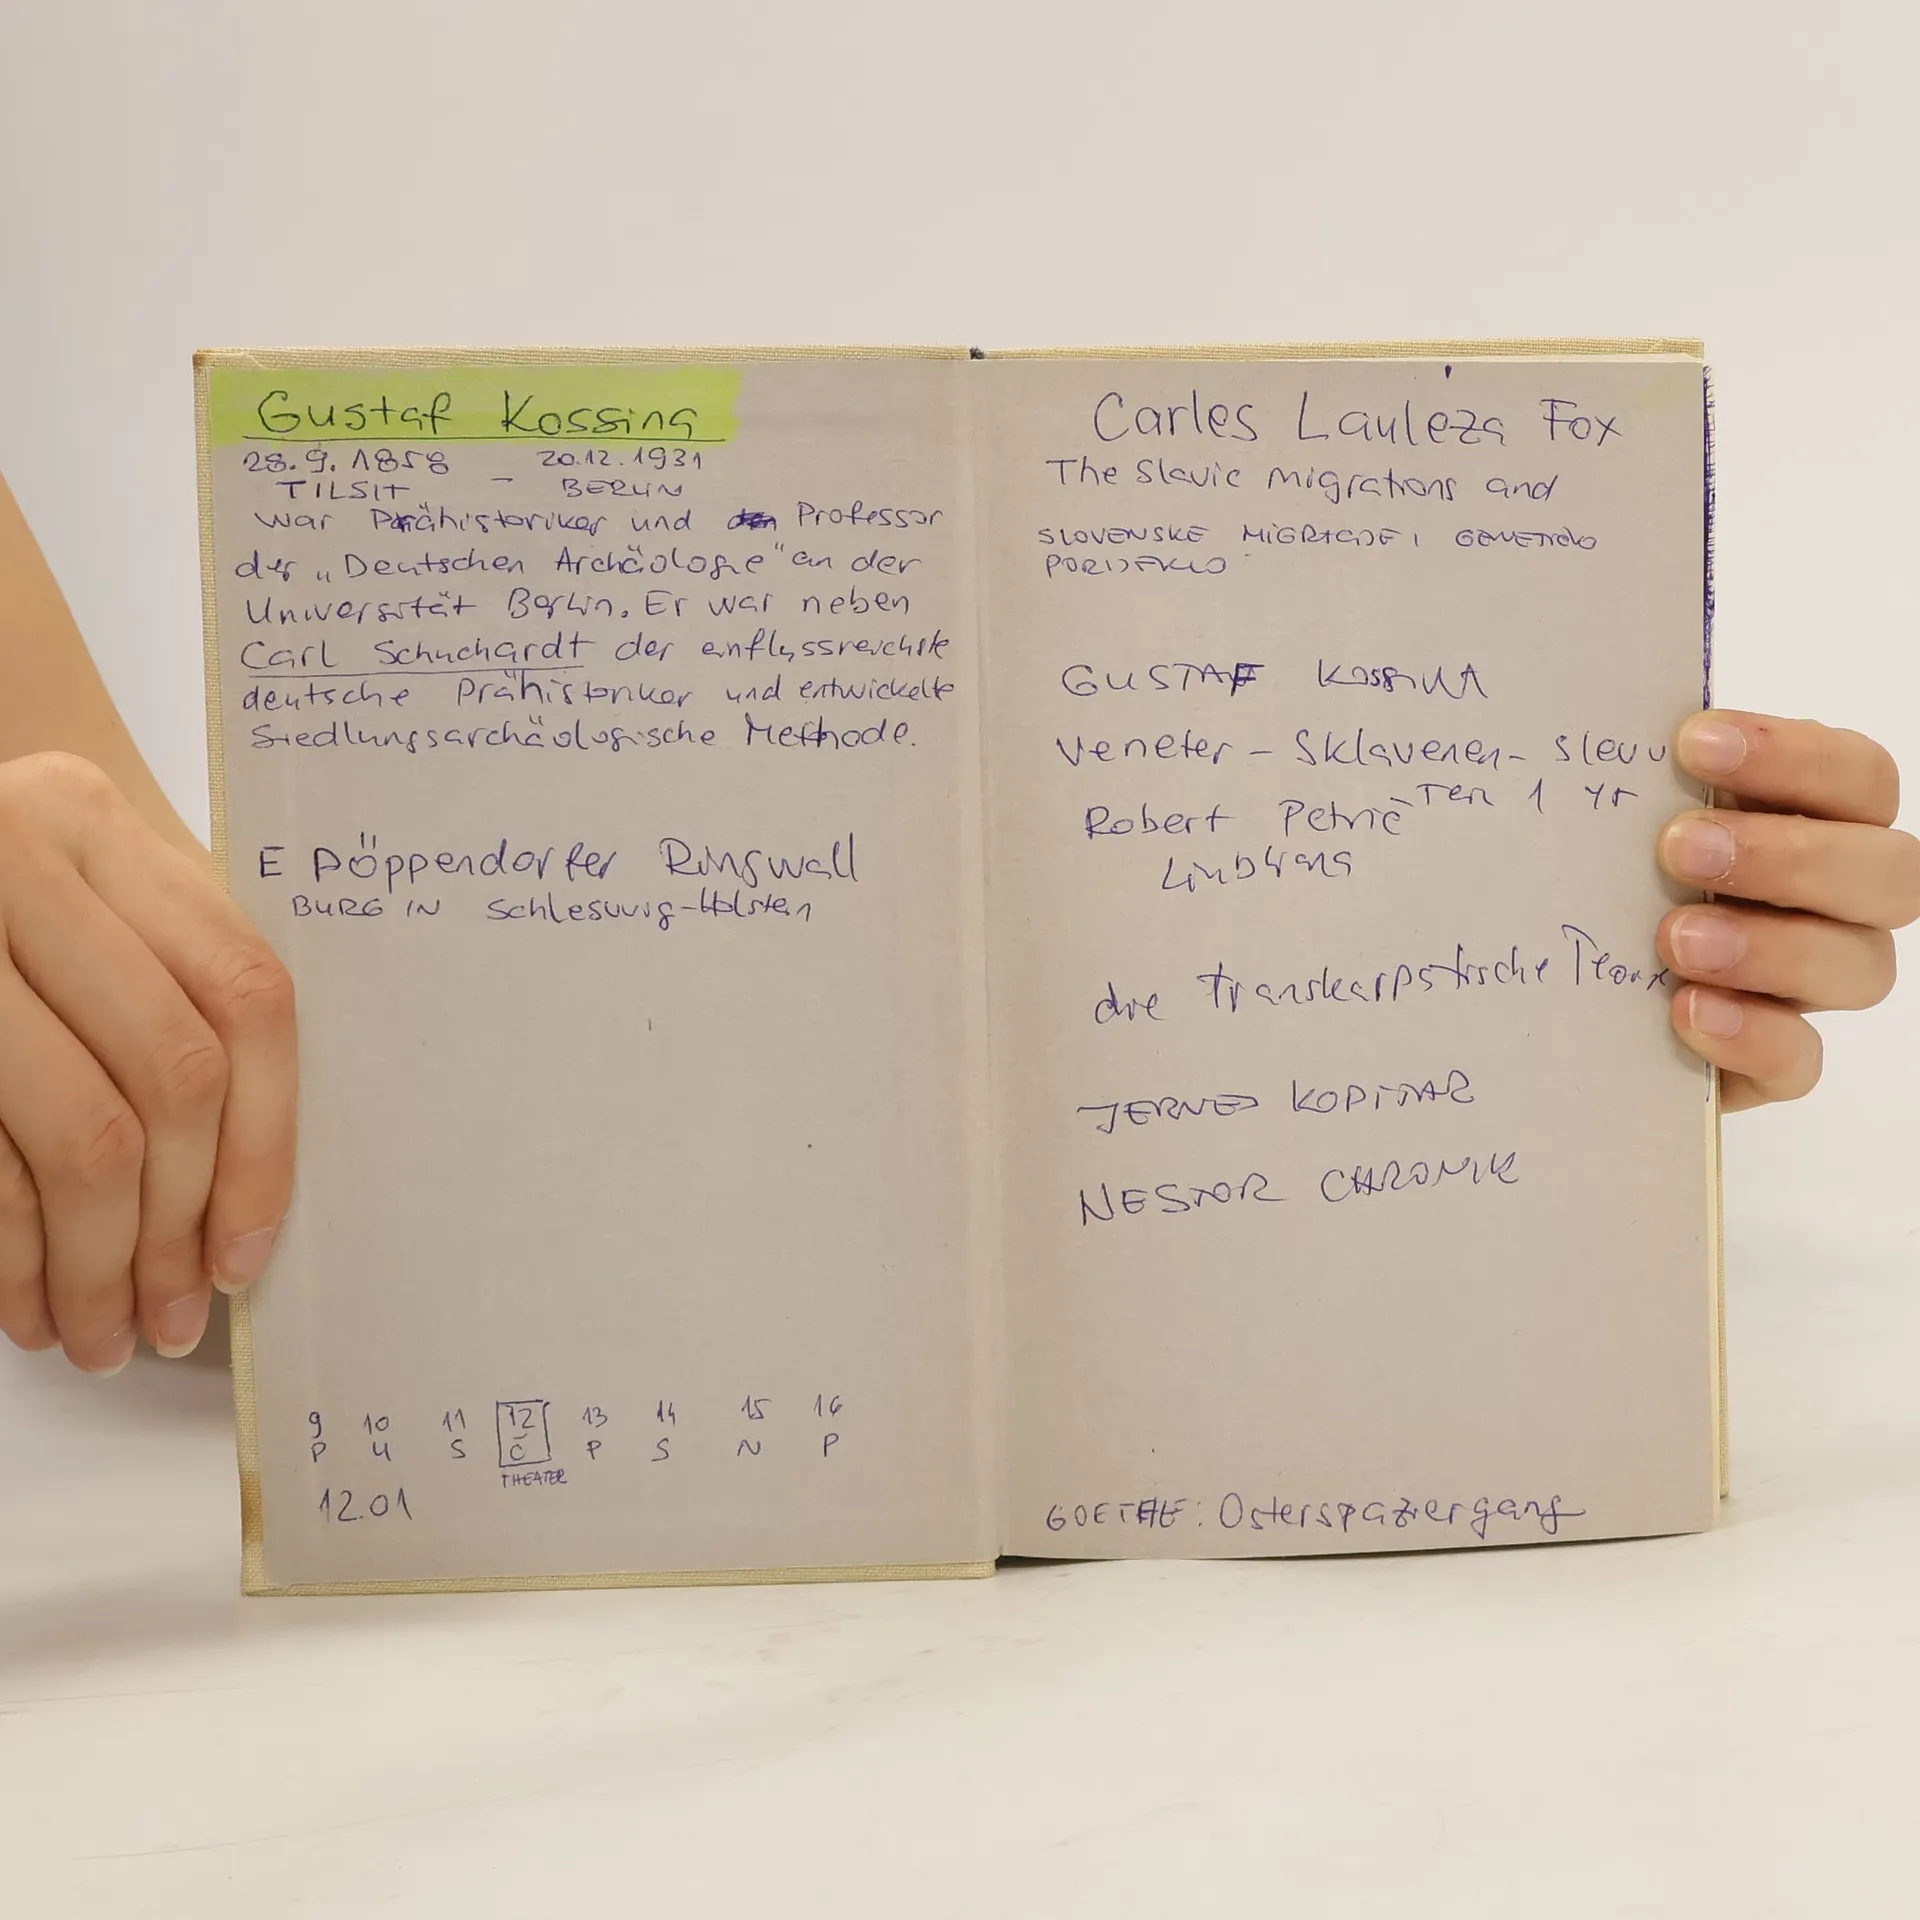 Gustaf Kossina
28.9.1858 – 20.12.1931
TILSIT BERLIN
war Prähistoriker und Professor
der „Deutschen Archäologie" an der
Universität Berlin. Er war neben
Carl Schuchardt der einflussreichste
deutsche Prähistoriker und entwickelte
Siedlungsarchäologische Methode.
E Pöppendorfer Ringwall
BURG IN Schleswig-Holstein
9 10 11 12 13 14 15 16
P U S Č P S N P
THEATER
12.01
Carles Lauleza Fox
The Slavic migrations and
SLOVENSKE MIGRACIJE I GENETIČKO
PORIJEKLO
GUSTAF KOSSINA
Veneter – Sklavenen –
Robert Petrič
die transkarpatische
JERNEJ KOPITAR
NESTOR CHRONIK
GOETHE: Osterspaziergang